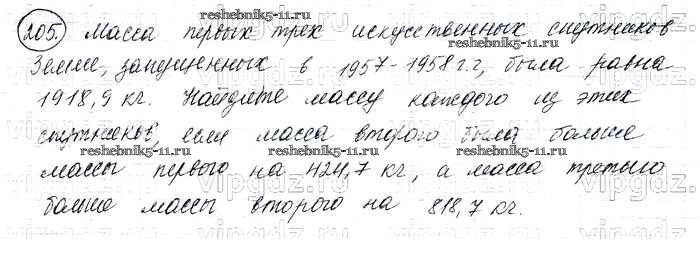 205. Масса первых трех искусственных спутников
Земли, запущенных в 1957-1958 г.г., была равна
1918,9 кг. Найдите массу каждого из этих
спутников, если масса второго была больше
массы первого на 424,7 кг, а масса третьего
больше массы второго на 818,7 кг.
reshebnik5-11.ru
reshebnik5-11.ru
reshebnik5-11.ru
reshebnik5-11.ru
vipgdz.ru